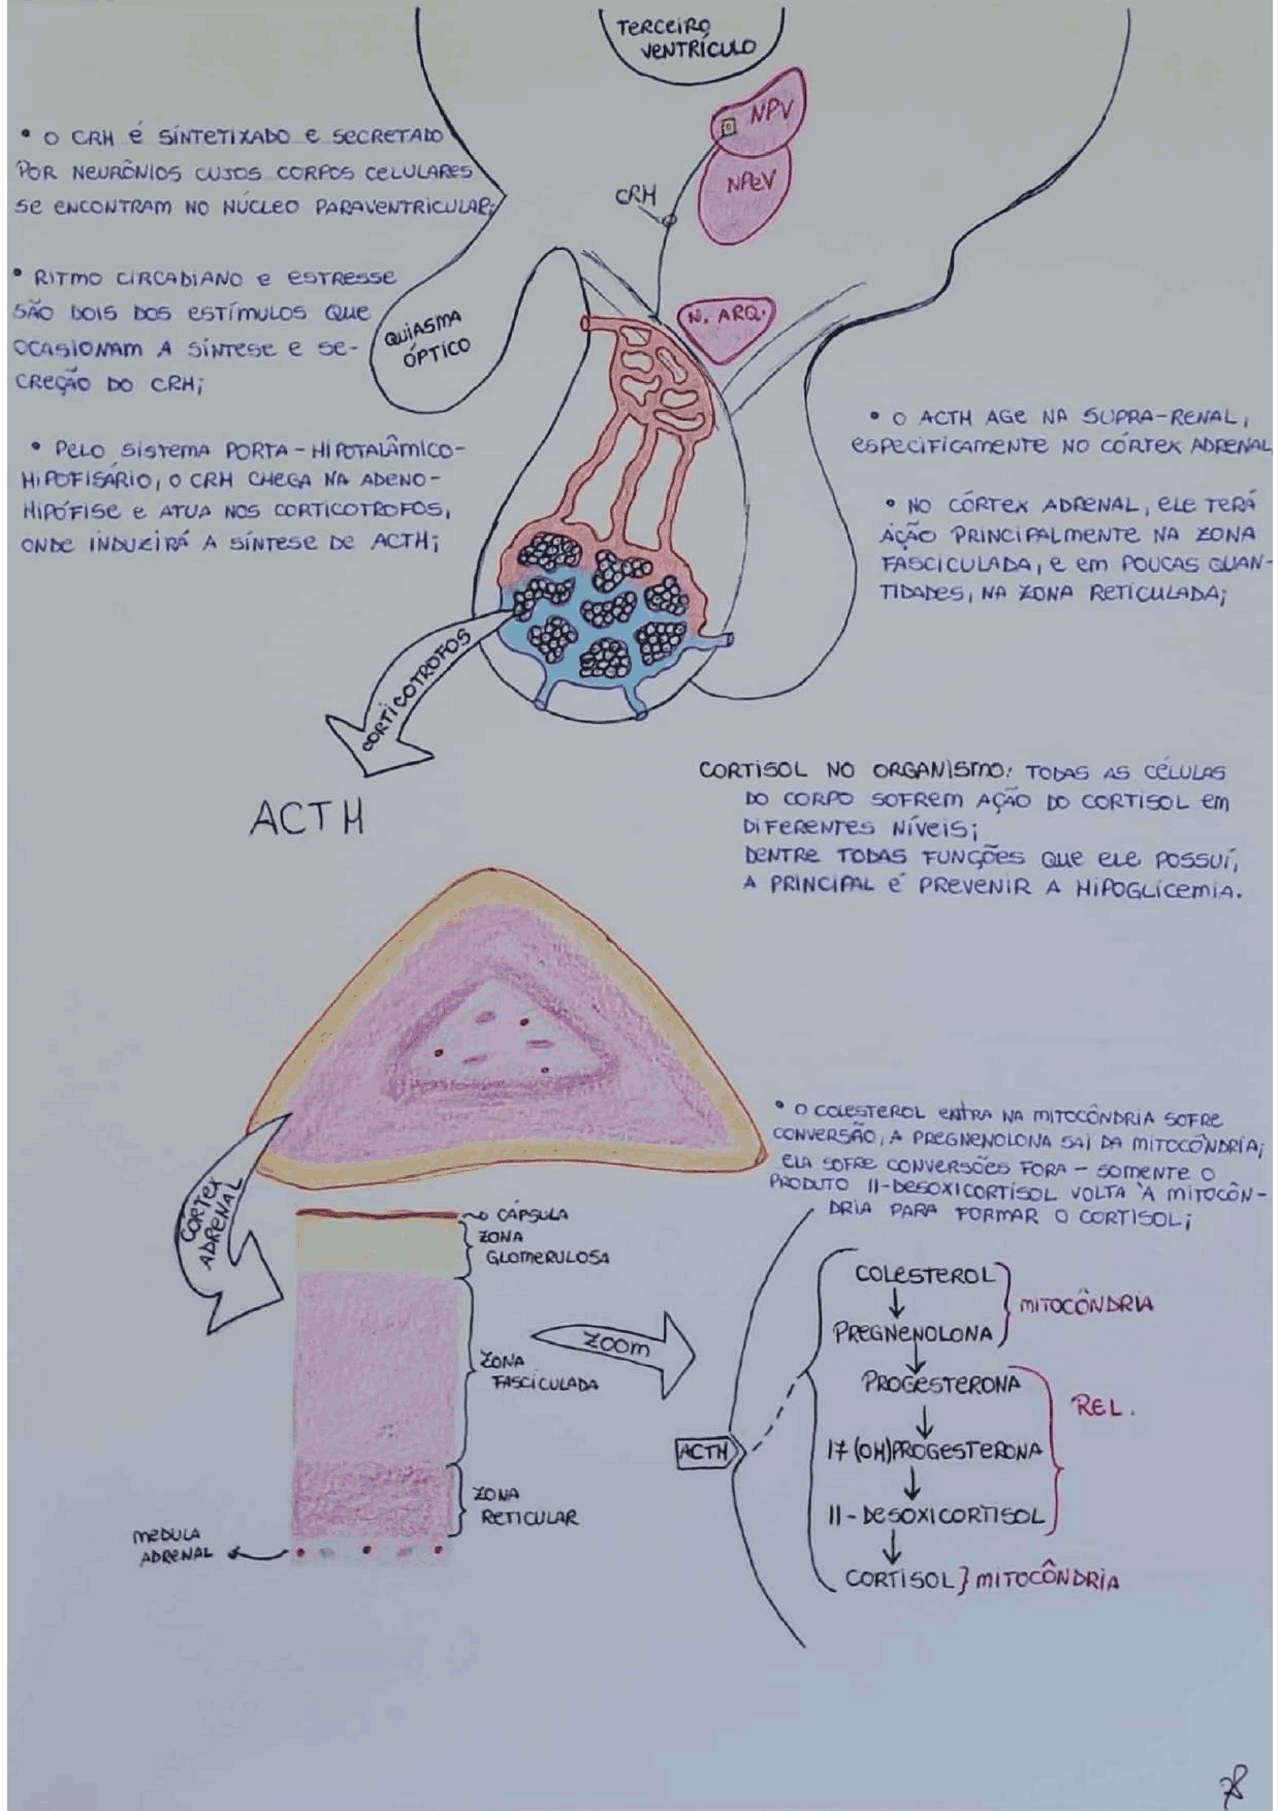 TERCEIRO
VENTRÍCULO
NPV
NPeV
CRH
N. ARQ.
QUIASMA
ÓPTICO
• O CRH É SÍNTETIZADO E SECRETADO
POR NEURÔNIOS CUJOS CORPOS CELULARES
SE ENCONTRAM NO NÚCLEO PARAVENTRICULAR;
• RITMO CIRCADIANO E ESTRESSE
SÃO DOIS DOS ESTÍMULOS QUE
OCASIONAM A SÍNTESE E SE-
CREÇÃO DO CRH;
• PELO SISTEMA PORTA-HIPOTALÂMICO-
HIPOFISÁRIO, O CRH CHEGA NA ADENO-
HIPÓFISE E ATUA NOS CORTICOTROFOS,
ONDE INDUZIRÁ A SÍNTESE DE ACTH;
• O ACTH AGE NA SUPRA-RENAL,
ESPECIFICAMENTE NO CÓRTEX ADRENAL
• NO CÓRTEX ADRENAL, ELE TERÁ
AÇÃO PRINCIPALMENTE NA ZONA
FASCICULADA, E EM POUCAS QUAN-
TIDADES, NA ZONA RETICULADA;
CORTICOTROFOS
ACTH
CORTISOL NO ORGANISMO: TODAS AS CÉLULAS
DO CORPO SOFREM AÇÃO DO CORTISOL EM
DIFERENTES NÍVEIS;
DENTRE TODAS FUNÇÕES QUE ELE POSSUÍ,
A PRINCIPAL É PREVENIR A HIPOGLICEMIA.
CÓRTEX
ADRENAL
CÁPSULA
ZONA
GLOMERULOSA
ZONA
FASCICULADA
ZONA
RETICULAR
MEDULA
ADRENAL
ZOOM
• O COLESTEROL ENTRA NA MITOCÔNDRIA SOFRE
CONVERSÃO, A PREGNENOLONA SAI DA MITOCÔNDRIA;
ELA SOFRE CONVERSÕES FORA - SOMENTE O
PRODUTO 11-DESOXICORTISOL VOLTA À MITOCÔN-
DRIA PARA FORMAR O CORTISOL;
ACTH
COLESTEROL
PREGNENOLONA
MITOCÔNDRIA
PROGESTERONA
17(OH)PROGESTERONA
11-DESOXICORTISOL
REL.
CORTISOL } MITOCÔNDRIA